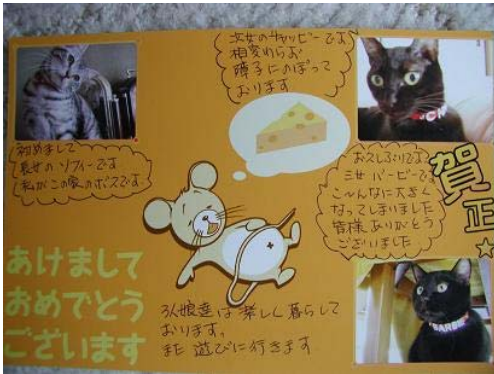 次女のチャッピーです
相変わらず
障子にのぼって
おります
初めまして
長女のソフィーです
私がこの家のボスです。
お久しぶりです
三女バービーです
こ〜んなに大きく
なってしまいました
皆様ありがとう
ございました
賀
正
あけまして
おめでとう
ございます
3人娘達は楽しく暮らして
おります。
また遊びに行きます
BARBIE